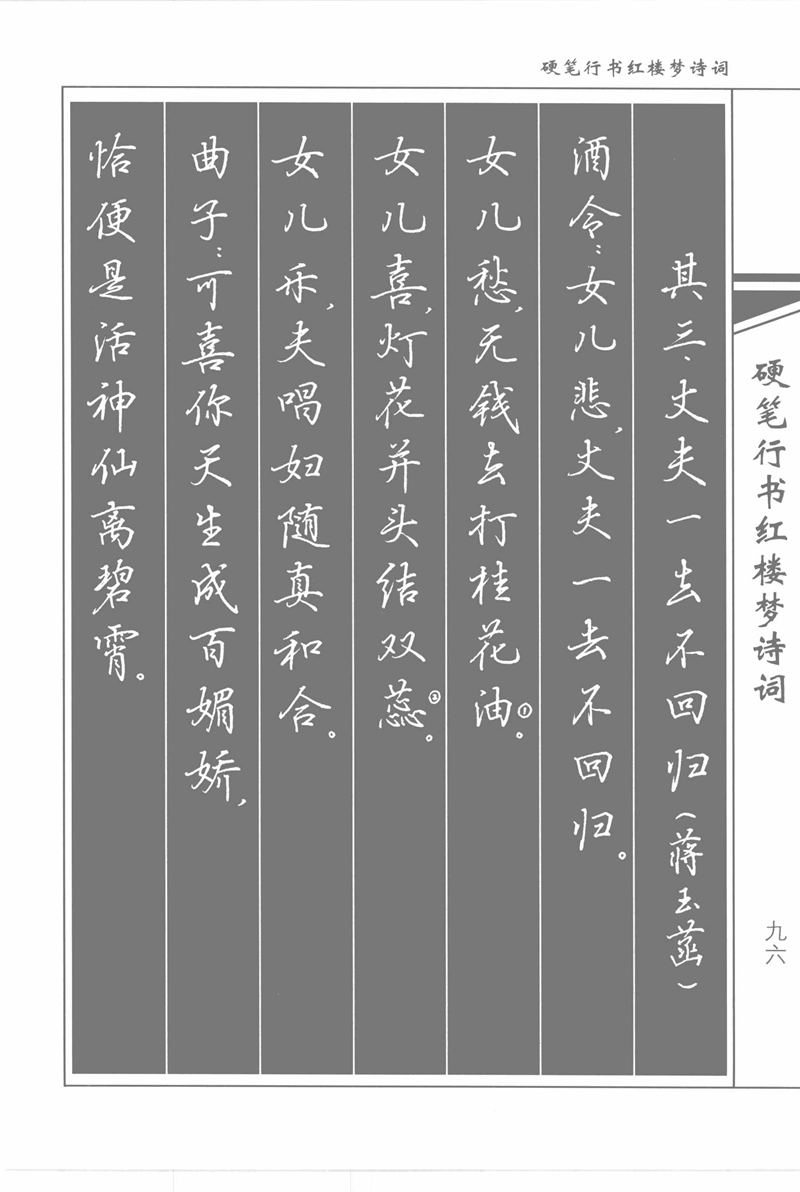 硬笔行书红楼梦诗词
其三、丈夫一去不回归(蒋玉菡)
酒令:女儿悲,丈夫一去不回归。
女儿愁,无钱去打桂花油①。
女儿喜,灯花并头结双蕊②。
女儿乐,夫唱妇随真和合。
曲子:可喜你天生成百媚娇,
恰便是活神仙离碧霄。
硬笔行书红楼梦诗词
九六